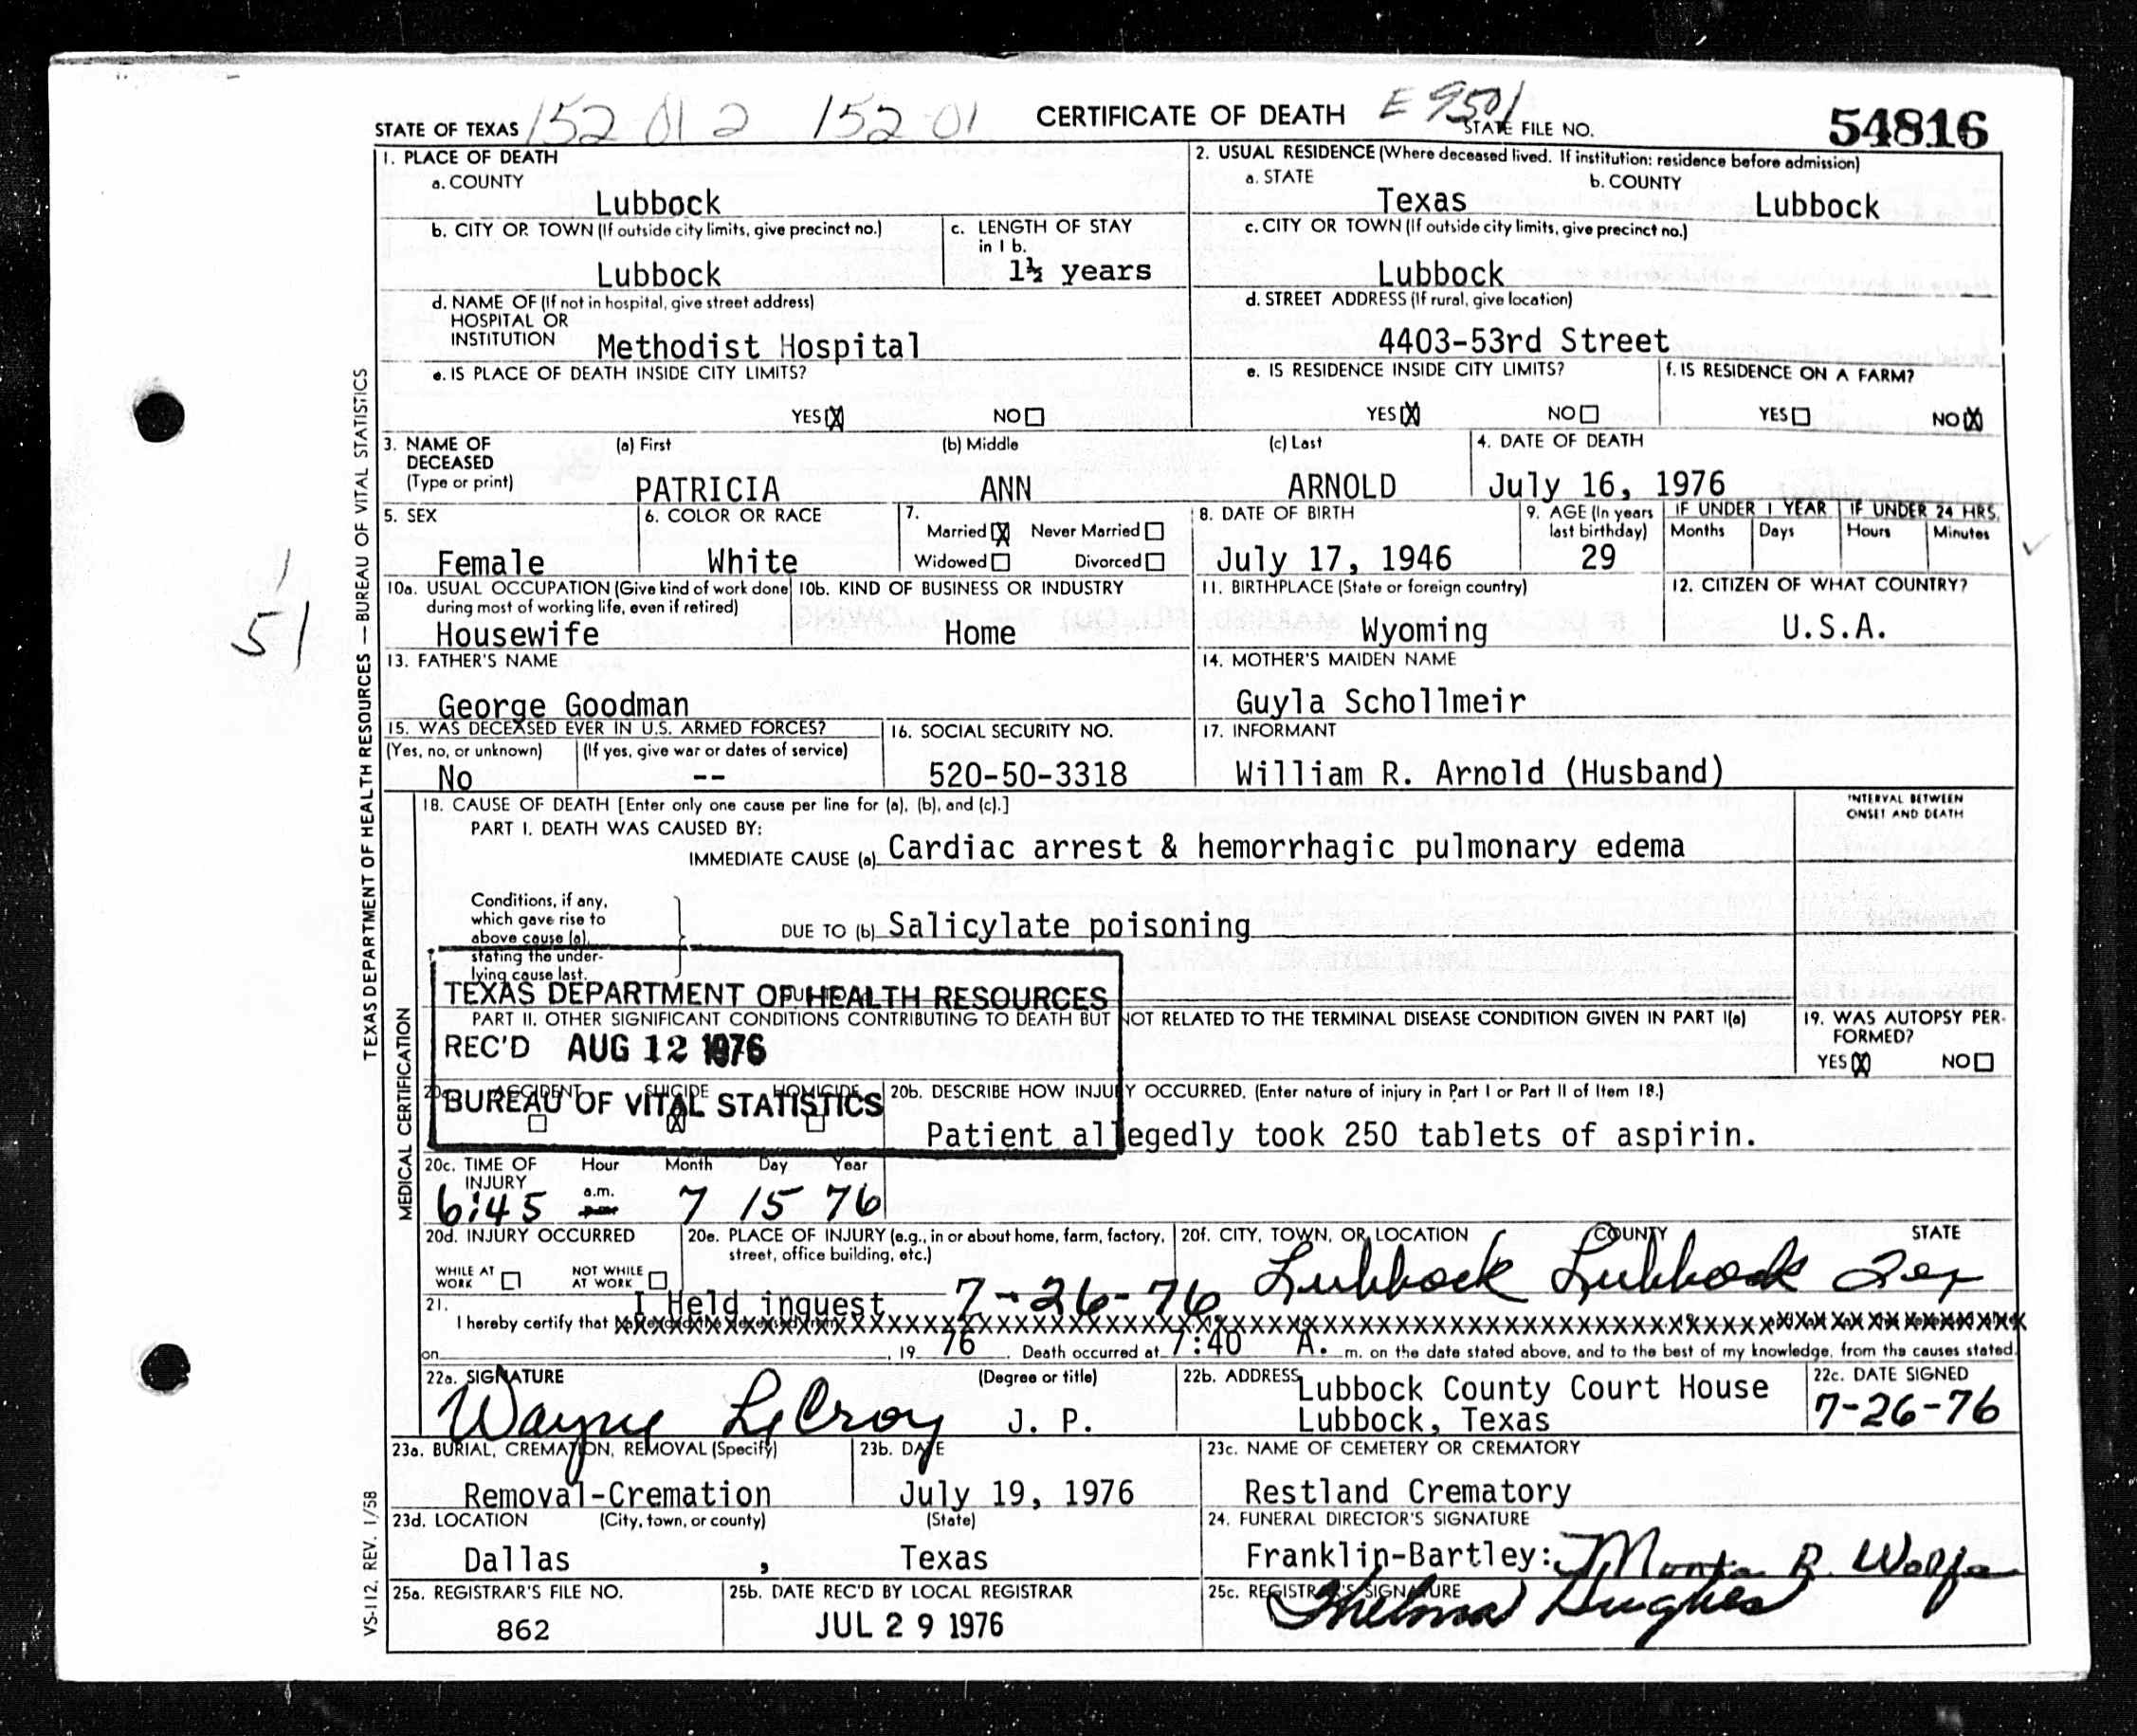 STATE OF TEXAS 152 01 2 152 01 CERTIFICATE OF DEATH E 9501 STATE FILE NO. 54816
1. PLACE OF DEATH
a. COUNTY
Lubbock
2. USUAL RESIDENCE (Where deceased lived. If institution: residence before admission)
a. STATE b. COUNTY
Texas Lubbock
b. CITY OR TOWN (If outside city limits, give precinct no.)
Lubbock
c. LENGTH OF STAY
in 1 b.
1½ years
c. CITY OR TOWN (If outside city limits, give precinct no.)
Lubbock
d. NAME OF (If not in hospital, give street address)
HOSPITAL OR
INSTITUTION Methodist Hospital
d. STREET ADDRESS (If rural, give location)
4403-53rd Street
e. IS PLACE OF DEATH INSIDE CITY LIMITS?
YES X NO
e. IS RESIDENCE INSIDE CITY LIMITS?
YES X NO
f. IS RESIDENCE ON A FARM?
YES NO X
3. NAME OF (a) First (b) Middle (c) Last
DECEASED
(Type or print) PATRICIA ANN ARNOLD
4. DATE OF DEATH
July 16, 1976
5. SEX
Female
6. COLOR OR RACE
White
7.
Married X Never Married
Widowed Divorced
8. DATE OF BIRTH
July 17, 1946
9. AGE (In years
last birthday)
29
IF UNDER 1 YEAR IF UNDER 24 HRS.
Months Days Hours Minutes
10a. USUAL OCCUPATION (Give kind of work done
during most of working life, even if retired)
Housewife
10b. KIND OF BUSINESS OR INDUSTRY
Home
11. BIRTHPLACE (State or foreign country)
Wyoming
12. CITIZEN OF WHAT COUNTRY?
U.S.A.
51
13. FATHER'S NAME
George Goodman
14. MOTHER'S MAIDEN NAME
Guyla Schollmeir
15. WAS DECEASED EVER IN U.S. ARMED FORCES?
(Yes, no, or unknown) (If yes, give war or dates of service)
No --
16. SOCIAL SECURITY NO.
520-50-3318
17. INFORMANT
William R. Arnold (Husband)
18. CAUSE OF DEATH [Enter only one cause per line for (a), (b), and (c).]
INTERVAL BETWEEN
ONSET AND DEATH
PART I. DEATH WAS CAUSED BY:
IMMEDIATE CAUSE (a) Cardiac arrest & hemorrhagic pulmonary edema
Conditions, if any,
which gave rise to
above cause (a),
stating the under-
lying cause last.
DUE TO (b) Salicylate poisoning
TEXAS DEPARTMENT OF HEALTH RESOURCES
REC'D AUG 12 1976
BUREAU OF VITAL STATISTICS
PART II. OTHER SIGNIFICANT CONDITIONS CONTRIBUTING TO DEATH BUT NOT RELATED TO THE TERMINAL DISEASE CONDITION GIVEN IN PART I(a)
19. WAS AUTOPSY PER-
FORMED?
YES X NO
20a. ACCIDENT SUICIDE HOMICIDE
X
20b. DESCRIBE HOW INJURY OCCURRED. (Enter nature of injury in Part I or Part II of Item 18.)
Patient allegedly took 250 tablets of aspirin.
20c. TIME OF Hour Month Day Year
INJURY
6:45 a.m. 7 15 76
20d. INJURY OCCURRED
WHILE AT
WORK
NOT WHILE
AT WORK
20e. PLACE OF INJURY (e.g., in or about home, farm, factory,
street, office building, etc.)
20f. CITY, TOWN, OR LOCATION COUNTY STATE
Lubbock Lubbock Tex
21. I Held inquest 7-26-76
I hereby certify that
on , 19 76 . Death occurred at 7:40 A. m. on the date stated above, and to the best of my knowledge, from the causes stated.
22a. SIGNATURE (Degree or title)
Wayne LeCroy J. P.
22b. ADDRESS
Lubbock County Court House
Lubbock, Texas
22c. DATE SIGNED
7-26-76
23a. BURIAL, CREMATION, REMOVAL (Specify)
Removal-Cremation
23b. DATE
July 19, 1976
23c. NAME OF CEMETERY OR CREMATORY
Restland Crematory
23d. LOCATION (City, town, or county) (State)
Dallas , Texas
24. FUNERAL DIRECTOR'S SIGNATURE
Franklin-Bartley: B. Wolfe
25a. REGISTRAR'S FILE NO.
862
25b. DATE REC'D BY LOCAL REGISTRAR
JUL 29 1976
25c. REGISTRAR'S SIGNATURE
Thelma Hughes
TEXAS DEPARTMENT OF HEALTH RESOURCES — BUREAU OF VITAL STATISTICS
MEDICAL CERTIFICATION
VS-112, REV. 1/58